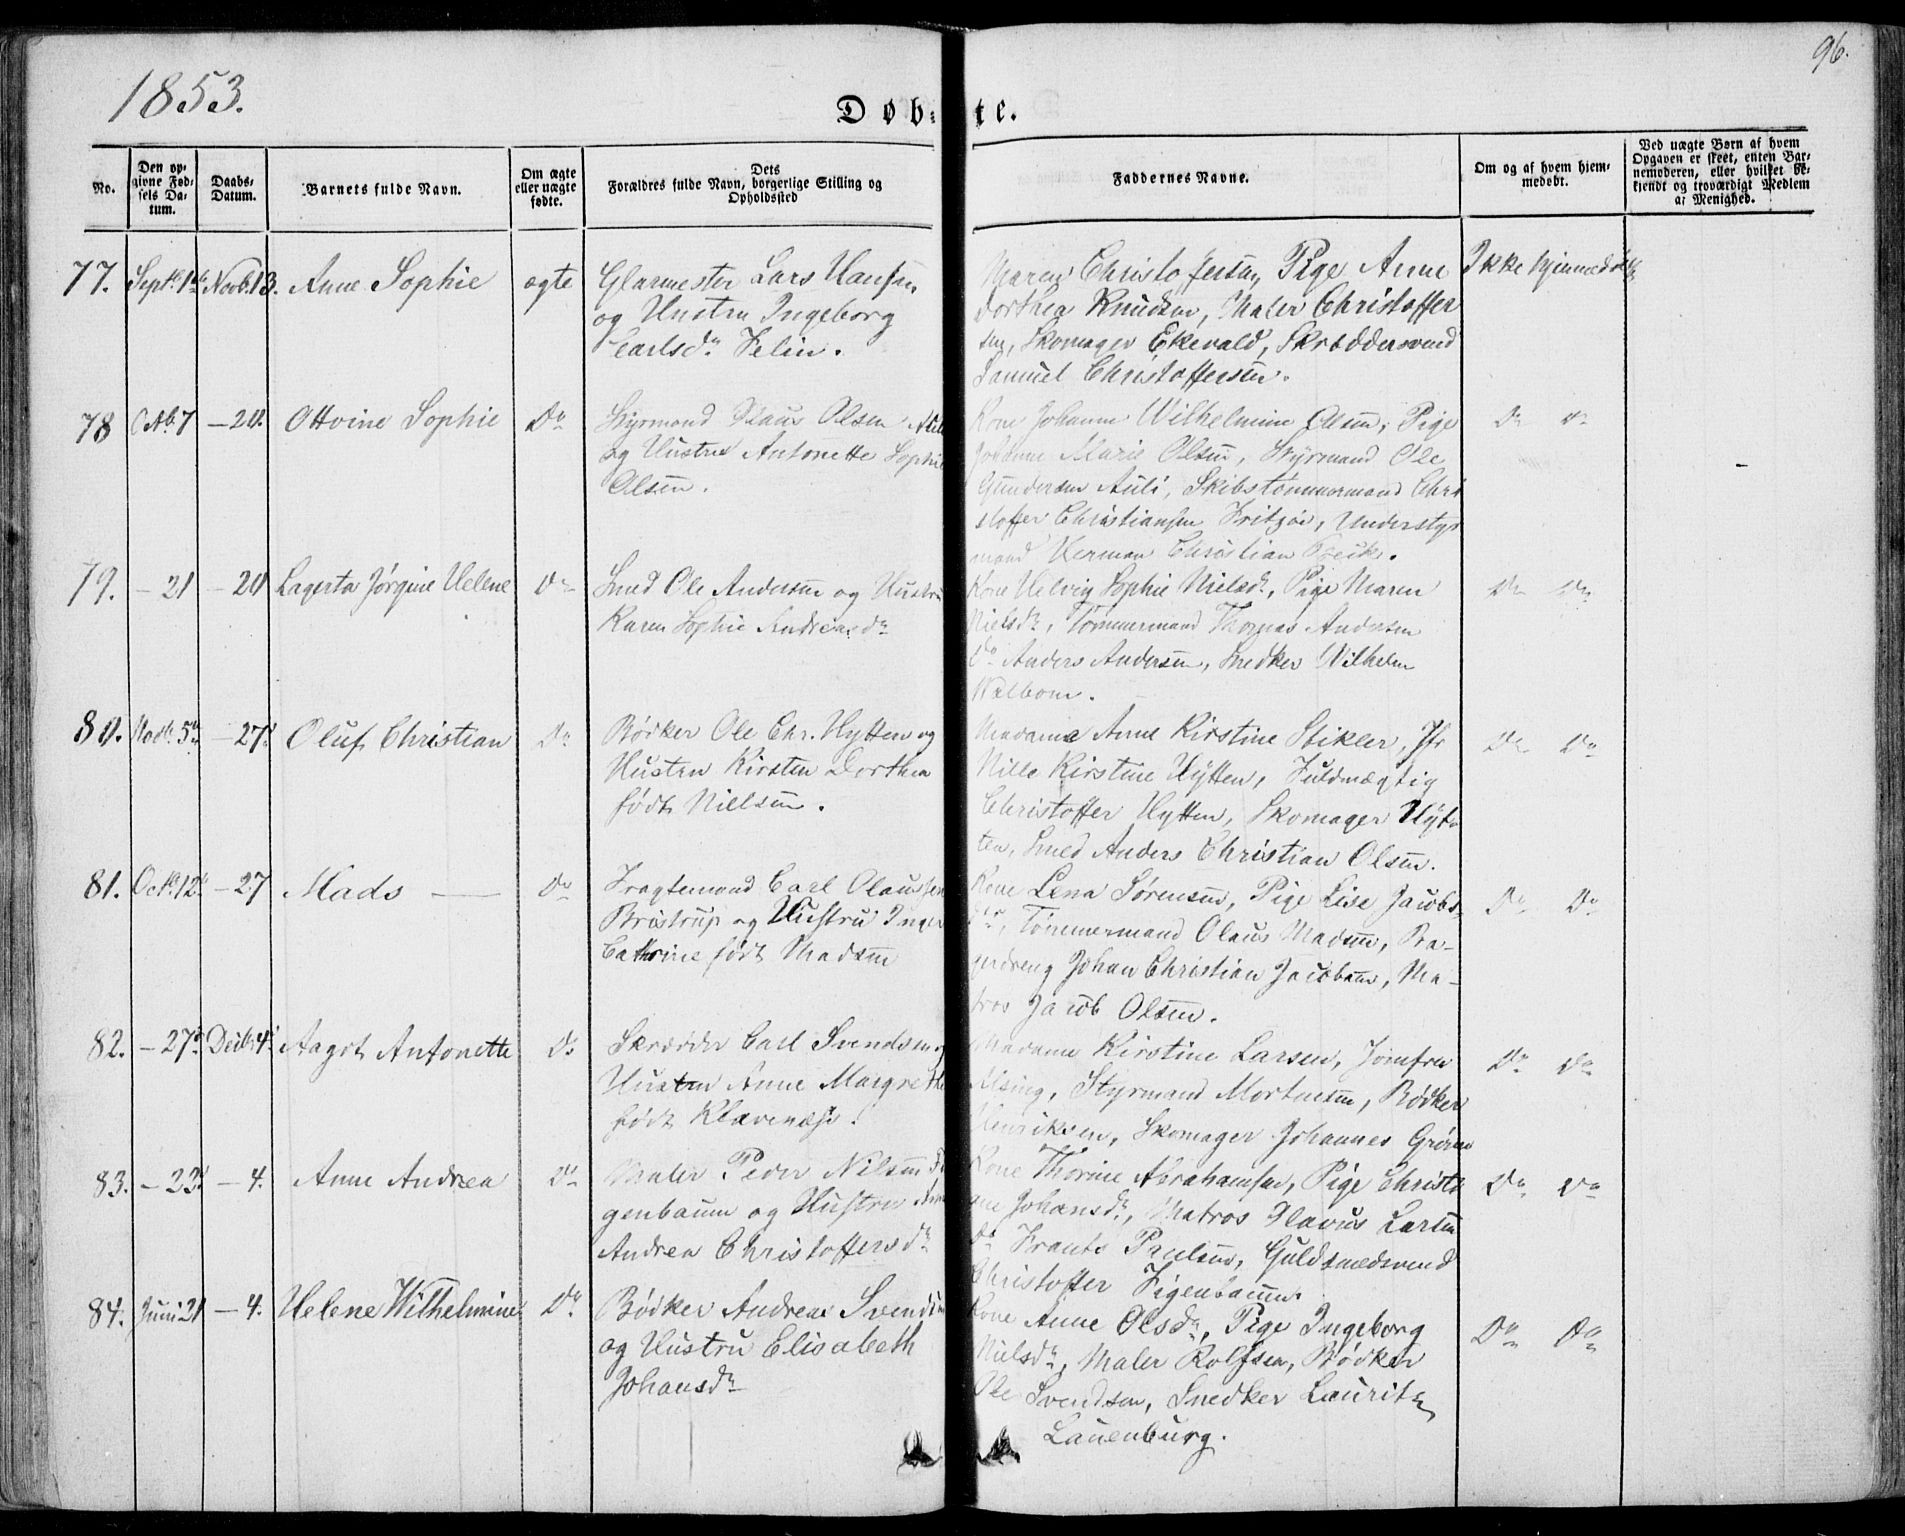 1853.
96.
Døb-te.
No.
Den op-
givne Fød-
sels Da-
tum.
Daabs-
Datum.
Barnets fulde Navn.
Om ægte
eller uægte
fødte.
Dets
Forældres fulde Navn, borgerlige Stilling og
Opholdssted
Faddernes Navne.
Om og af hvem hjem-
medøbt.
Ved uægte Børn af hvem
Opgaven er skeet, enten Bar-
nemoderen, eller hvilket be-
kjendt og troværdigt Medlem
af Menighed.
77. Septb. 1 Novb. 13. Anne Sophie ægte
Glarmester Lars Hansen
og Hustru Ingeborg
Carlsdr. Felin.
Maren Christoffersen, Pige Anne
Dorthea Knudsen, Maler Christoffer
sen, Skomager Ekevald, Skræddersvend
Samuel Christoffersen.
Ikke hjemmedøbt
78 Octb. 7 — 20. Ottvine Sophie Do
Styrmand Olaus Olsen Auli
og Hustru Antonette Sophie
Olsen.
Kone Johanne Wilhelmine Olsen, Pige
Johanne Marie Olsen, Styrmand Ole
Gundersen Auli, Skibstømmermand Chri
stoffer Christiansen Fritzøe, Understyr
mand Herman Christian
Do Do
79. — 21 — 20 Lagerta Jørgine Helene Do
Smed Ole Andersen og Hustru
Karen Sophie Andreasdr
Kone Helvig Sophie Nielsdr, Pige Maren
Nielsdr, Tømmermand Thomas Andersen
Do Anders Andersen, Snedker Wilhelm
Walbom.
Do Do
80. Novb. 5 — 27 Oluf Christian Do
Bødker Ole Chr. Hytten og
Hustru Kirsten Dorthea
født Nielsen.
Madame Anne Kirstine Stikler, Jfr
Nille Kirstine Hytten, Fuldmægtig
Christoffer Hytten, Skomager Hyt-
ten, Smed Anders Christian Olsen.
Do Do
81. Octb. 12 — 27 Mads — Do
Fragtemand Carl Olaussen
Bristrup og Hustru Inger
Cathrine født Madsen
Kone Lena Sørensen, Pige Lise Jacobs-
dr, Tømmermand Olaus Madsen, Ba-
gerdreng Johan Christian Jacobsen, Ma-
tros Jacob Olsen.
Do Do
82. — 27 Decb. 4 Aagot Antonette Do
Skræder Carl Svendsen og
Hustru Anne Margrethe
født Klavenæss.
Madame Kirstine Larsen, Jomfru
Alsing, Styrmand Mortensen, Bødker
Henriksen, Skomager Johannes Grønn
Do Do
83. — 23 — 4. Anne Andrea Do
Maler Peder Nilsen Fi
genbaum og Hustru Anne
Andrea Christoffersdr
Kone Thorine Abrahamsen, Pige Christi
ane Johansdr, Matros Olavus Larsen
Do Frants Paulsen, Guldsmedsvend
Christoffer Figenbaum.
Do Do
84. Juni 21 — 4. Helene Wilhelmine Do
Bødker Andreas Svendsen
og Hustru Elisabeth
Johansdr
Kone Anne Olsdr, Pige Ingeborg
Nielsdr, Maler Rolfsen, Bødker
Ole Svendsen, Snedker Lauritz
Lauenburg.
Do Do